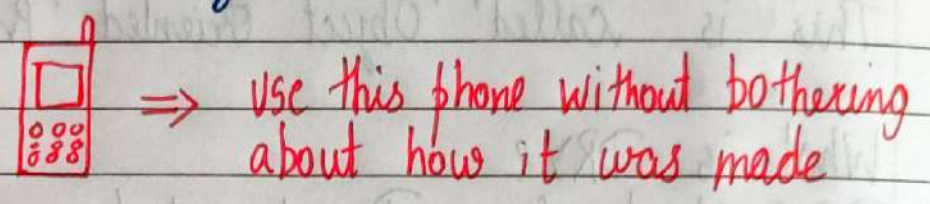 ⇒ Use this phone without bothering
about how it was made